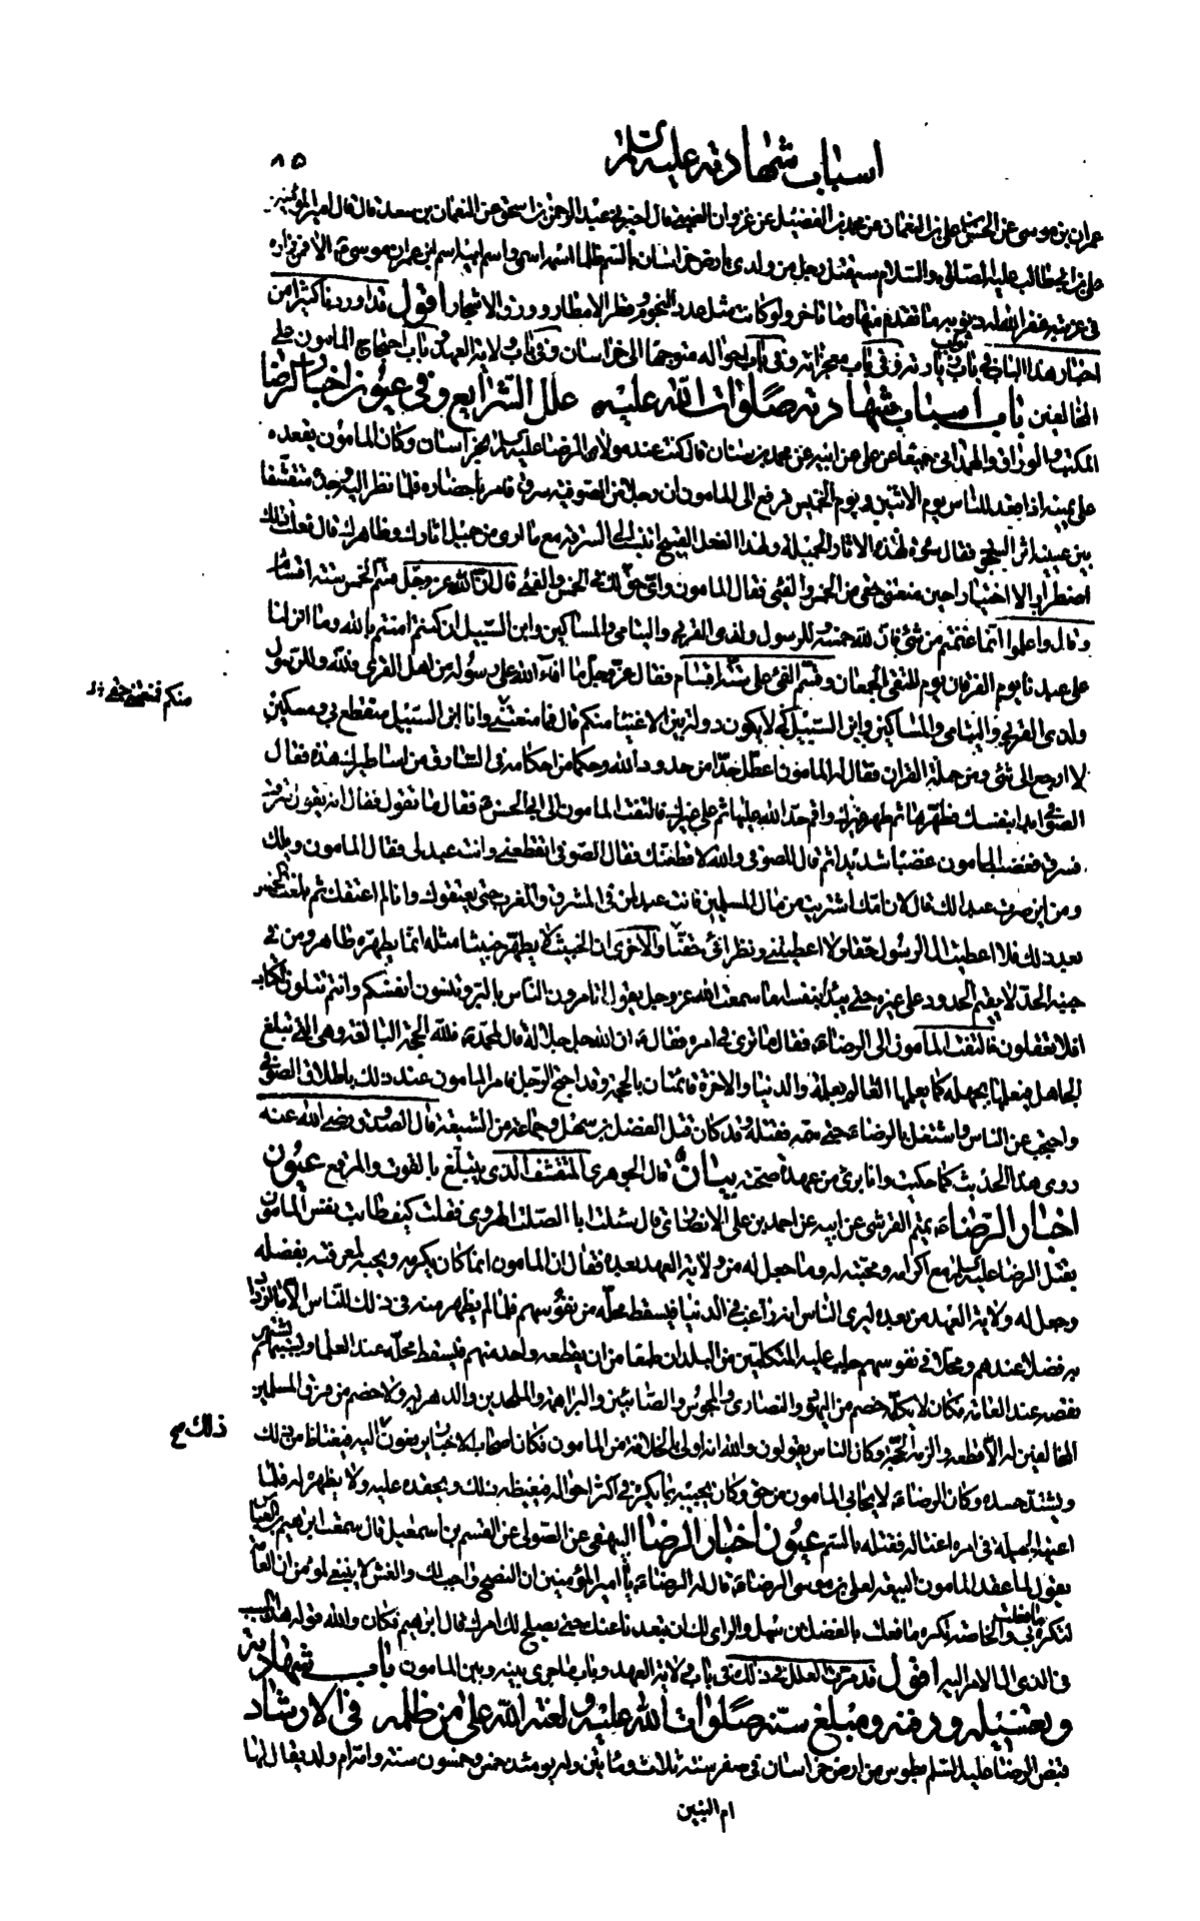 اسباب شهادته عليه السلام
٨٥
عمران بن موسى عن الحسن بن علي بن النعمان عن محمد بن الفضيل عن غزوان الضبي قال اخبرني عبد الرحمن بن اسحق عن النعمان بن سعد قال قال امير المؤمنين
علي بن ابي طالب عليه الصلاة والسلام سيقتل رجل من ولدي بارض خراسان بالسم ظلما اسمه اسمي واسم ابيه اسم ابن عمران موسى ع الا فمن زاره
في غربته غفر الله له ذنوبه ما تقدم منها وما تاخر ولو كانت مثل عدد النجوم وقطر الامطار وورق الاشجار اقول قد اوردنا كثيرا من
اخبار هذا الباب في باب ثواب زيارته وفي باب معجزاته وفي باب احواله متوجها الى خراسان وفي باب ولاية العهد وباب احتجاج المامون على
المخالفين باب اسباب شهادته صلوات الله عليه علل الشرايع وفي عيون اخبار الرضا
المكتب والوراق والهمداني جميعا عن علي عن ابيه عن محمد بن سنان قال كنت عند مولاي الرضا عليه السلام بخراسان وكان المامون يقعده
على يمينه اذا قعد للناس يوم الاثنين ويوم الخميس فرفع الى المامون ان رجلا من الصوفية سرق فامر باحضاره فلما نظر اليه وجده متقشفا
بين عينيه اثر السجود فقال سوءة لهذه الاثار الجميلة ولهذا الفعل القبيح اتنسب الى السرقة مع ما ارى من جميل اثارك وظاهرك قال فعلت ذلك
اضطرارا لا اختيارا حين منعتني حقي من الخمس والفيء فقال المامون واي حق لك في الخمس والفيء قال ان الله عز وجل قسم الخمس ستة اقسام
وقال واعلموا انما غنمتم من شيء فان لله خمسه وللرسول ولذي القربى واليتامى والمساكين وابن السبيل ان كنتم امنتم بالله وما انزلنا
على عبدنا يوم الفرقان يوم التقى الجمعان وقسم الفيء على ستة اقسام فقال عز وجل ما افاء الله على رسوله من اهل القرى فلله وللرسول
ولذي القربى واليتامى والمساكين وابن السبيل كي لا يكون دولة بين الاغنياء منكم قال فما منعتني وانا ابن السبيل منقطع بي ومسكين
منكم فمنعتني حقي
لا ارجع الى شيء ومن حملة القران فقال له المامون اعطل حدا من حدود الله وحكما من احكامه في السارق من اساطيرك هذه فقال
الصوفي ابدا بنفسك فطهرها ثم طهر غيرك واقم حد الله عليها ثم على غيرك فالتفت المامون الى ابي الحسن ع فقال ما تقول فقال انه يقول سرقت
فسرق فغضب المامون غضبا شديدا ثم قال للصوفي والله لاقطعنك فقال الصوفي اتقطعني وانت عبد لي فقال المامون ويلك
ومن اين صرت عبدا لك قال لان امك اشتريت من مال المسلمين فانت عبد لمن في المشرق والمغرب حتى يعتقوك وانا لم اعتقك ثم بلعت الخمس
بعد ذلك فلا اعطيت ال الرسول حقا ولا اعطيتني ونظرائي حقنا والاخرى ان الخبيث لا يطهر خبيثا مثله انما يطهره طاهر ومن في
جنبه الحد لا يقيم الحدود على غيره حتى يبدأ بنفسه اما سمعت الله عز وجل يقول اتامرون الناس بالبر وتنسون انفسكم وانتم تتلون الكتاب
افلا تعقلون فالتفت المامون الى الرضا ع فقال ما ترى في امره فقال ع ان الله جل جلاله قال لمحمد ص فلله الحجة البالغة وهي التي تبلغ
الجاهل فيعلمها بجهله كما يعلمها العالم بعلمه والدنيا والاخرة قائمتان بالحجة وقد احتج الرجل فامر المامون عند ذلك باطلاق الصوفي
واحتجب عن الناس واشتغل بالرضا ع حتى سمه فقتله وقد كان قتل الفضل بن سهل وجماعة من الشيعة قال الصدوق رضي الله عنه
روي هذا الحديث كما حكيته وانا بريء من عهدة صحته بيان قال الجوهري المتقشف الذي يتبلغ بالقوت والمرقع عيون
اخبار الرضا ع تميم القرشي عن ابيه عن احمد بن علي الانصاري قال سئلت ابا الصلت الهروي فقلت كيف طابت نفس المامون
بقتل الرضا عليه السلام مع اكرامه ومحبته له وما جعل له من ولاية العهد بعده فقال ان المامون انما كان يكرمه ويحبه لمعرفته بفضله
وجعل له ولاية العهد من بعده ليرى الناس انه راغب في الدنيا فيسقط محله من نفوسهم فلما لم يظهر منه في ذلك للناس الا ما ازداد
به فضلا عندهم ومحلا في نفوسهم جلب عليه المتكلمين من البلدان طمعا من ان يقطعه واحد منهم فيسقط محله عند العلماء وبسببهم يشتهر
نقصه عند العامة فكان لا يكلمه خصم من اليهود والنصارى والمجوس والصابئين والبراهمة والملحدين والدهرية ولا خصم من فرق المسلمين
المخالفين له الا قطعه والزمه الحجة وكان الناس يقولون والله انه اولى بالخلافة من المامون فكان اصحاب الاخبار يرفعون اليه فيغتاظ من ذلك
ذلك صح
ويشتد حسده وكان الرضا ع لا يحابي المامون من حق وكان يجيبه بما يكره في اكثر احواله فيغيظه ذلك ويحقده عليه ولا يظهره له فلما
اعيته الحيلة في امره اغتاله فقتله بالسم عيون اخبار الرضا البيهقي عن الصولي عن القسم بن اسمعيل قال سمعت ابراهيم بن العباس
يقول لما عقد المامون البيعة لعلي بن موسى الرضا ع قال له الرضا ع يا امير المؤمنين ان النصح واجب لك والغش لا ينبغي لمؤمن ان العامة
لتكره ما فعلت بي والخاصة تكره ما فعلت بالفضل بن سهل والراي لك ان تبعدنا عنك حتى يصلح لك امرك قال ابراهيم فكان والله قوله هذا السبب
في الذي ال الامر اليه اقول قد مرت العلل في ذلك في باب ولاية العهد وباب ما جرى بينه وبين المامون باب شهادته
وتغسيله ودفنه ومبلغ سنه صلوات الله عليه ولعنة الله على من ظلمه في الارشاد
قبض الرضا عليه السلم بطوس من ارض خراسان في صفر سنة ثلاث ومائتين وله يومئذ خمس وخمسون سنة وامه ام ولد يقال لها
ام البنين